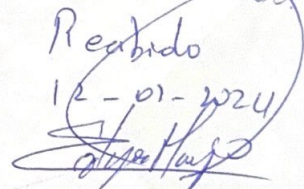 Recibido
12-01-2024